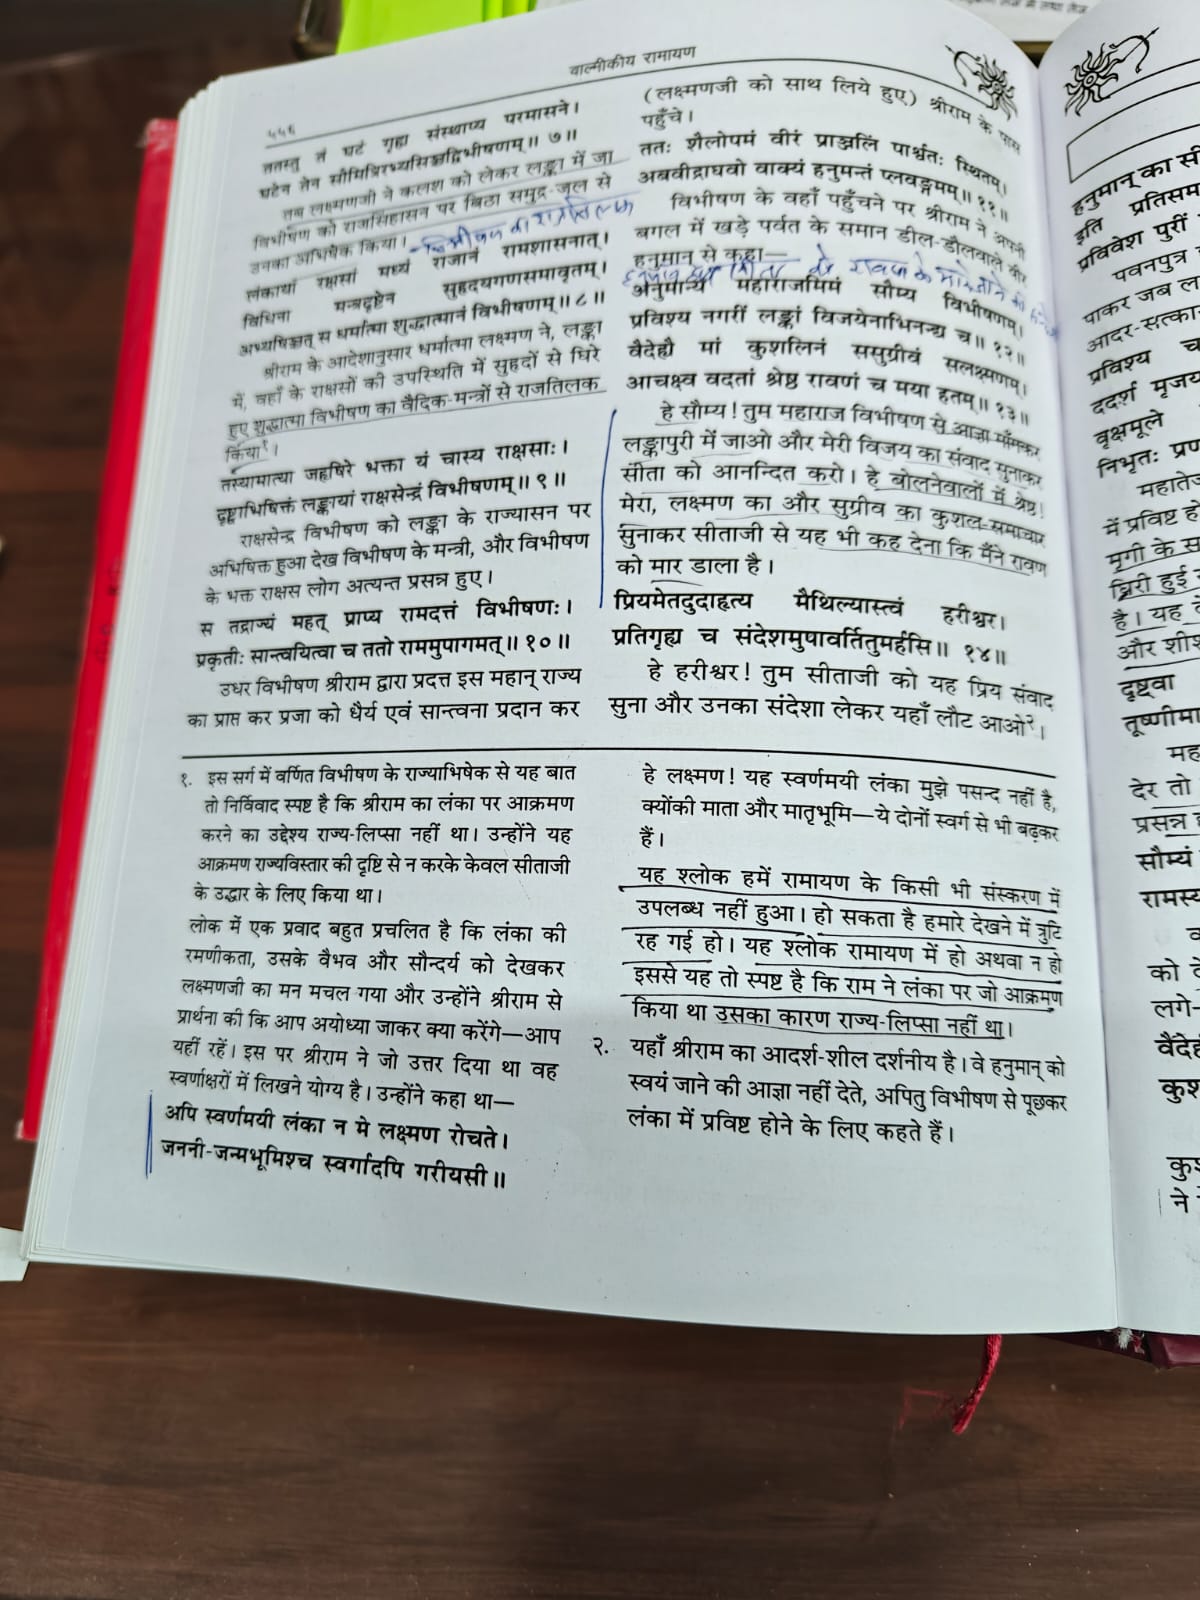 वाल्मीकीय रामायण
५५६
ततस्तु तं घटं गृह्य संस्थाप्य परमासने।
घटेन तेन सौमित्रिरभ्यसिञ्चद्विभीषणम्॥ ७॥
तब लक्ष्मणजी ने कलश को लेकर लङ्का में जा
विभीषण को राजसिंहासन पर बिठा समुद्र-जल से
उनका अभिषेक किया।
लंकायां रक्षसां मध्ये राजानं रामशासनात्।
विधिना मन्त्रदृष्टेन सुहृदयगणसमावृतम्।
अभ्यषिञ्चत् स धर्मात्मा शुद्धात्मानं विभीषणम्॥ ८॥
श्रीराम के आदेशानुसार धर्मात्मा लक्ष्मण ने, लङ्का
में, वहाँ के राक्षसों की उपस्थिति में सुहृदों से घिरे
हुए शुद्धात्मा विभीषण का वैदिक-मन्त्रों से राजतिलक
किया१।
तस्यामात्या जहृषिरे भक्ता ये चास्य राक्षसाः।
दृष्ट्वाभिषिक्तं लङ्कायां राक्षसेन्द्रं विभीषणम्॥ ९॥
राक्षसेन्द्र विभीषण को लङ्का के राज्यासन पर
अभिषिक्त हुआ देख विभीषण के मन्त्री, और विभीषण
के भक्त राक्षस लोग अत्यन्त प्रसन्न हुए।
स तद्राज्यं महत् प्राप्य रामदत्तं विभीषणः।
प्रकृतीः सान्त्वयित्वा च ततो राममुपागमत्॥ १०॥
उधर विभीषण श्रीराम द्वारा प्रदत्त इस महान् राज्य
का प्राप्त कर प्रजा को धैर्य एवं सान्त्वना प्रदान कर
(लक्ष्मणजी को साथ लिये हुए) श्रीराम के पास
पहुँचे।
ततः शैलोपमं वीरं प्राञ्जलिं पार्श्वतः स्थितम्।
अबवीद्राघवो वाक्यं हनुमन्तं प्लवङ्गमम्॥ ११॥
विभीषण के वहाँ पहुँचने पर श्रीराम ने अपनी
बगल में खड़े पर्वत के समान डील-डौलवाले वीर
हनुमान् से कहा—
अनुमान्य महाराजमिमं सौम्य विभीषणम्।
प्रविश्य नगरीं लङ्कां विजयेनाभिनन्द्य च॥ १२॥
वैदेह्यै मां कुशलिनं ससुग्रीवं सलक्ष्मणम्।
आचक्ष्व वदतां श्रेष्ठ रावणं च मया हतम्॥ १३॥
हे सौम्य! तुम महाराज विभीषण से आज्ञा माँगकर
लङ्कापुरी में जाओ और मेरी विजय का संवाद सुनाकर
सीता को आनन्दित करो। हे बोलनेवालों में श्रेष्ठ!
मेरा, लक्ष्मण का और सुग्रीव का कुशल-समाचार
सुनाकर सीताजी से यह भी कह देना कि मैंने रावण
को मार डाला है।
प्रियमेतदुदाहृत्य मैथिल्यास्त्वं हरीश्वर।
प्रतिगृह्य च संदेशमुपावर्तितुमर्हसि॥ १४॥
हे हरीश्वर! तुम सीताजी को यह प्रिय संवाद
सुना और उनका संदेशा लेकर यहाँ लौट आओ२।
१. इस सर्ग में वर्णित विभीषण के राज्याभिषेक से यह बात
तो निर्विवाद स्पष्ट है कि श्रीराम का लंका पर आक्रमण
करने का उद्देश्य राज्य-लिप्सा नहीं था। उन्होंने यह
आक्रमण राज्यविस्तार की दृष्टि से न करके केवल सीताजी
के उद्धार के लिए किया था।
लोक में एक प्रवाद बहुत प्रचलित है कि लंका की
रमणीकता, उसके वैभव और सौन्दर्य को देखकर
लक्ष्मणजी का मन मचल गया और उन्होंने श्रीराम से
प्रार्थना की कि आप अयोध्या जाकर क्या करेंगे—आप
यहीं रहें। इस पर श्रीराम ने जो उत्तर दिया था वह
स्वर्णाक्षरों में लिखने योग्य है। उन्होंने कहा था—
अपि स्वर्णमयी लंका न मे लक्ष्मण रोचते।
जननी-जन्मभूमिश्च स्वर्गादपि गरीयसी॥
हे लक्ष्मण! यह स्वर्णमयी लंका मुझे पसन्द नहीं है,
क्योंकी माता और मातृभूमि—ये दोनों स्वर्ग से भी बढ़कर
हैं।
यह श्लोक हमें रामायण के किसी भी संस्करण में
उपलब्ध नहीं हुआ। हो सकता है हमारे देखने में त्रुटि
रह गई हो। यह श्लोक रामायण में हो अथवा न हो
इससे यह तो स्पष्ट है कि राम ने लंका पर जो आक्रमण
किया था उसका कारण राज्य-लिप्सा नहीं था।
२. यहाँ श्रीराम का आदर्श-शील दर्शनीय है। वे हनुमान् को
स्वयं जाने की आज्ञा नहीं देते, अपितु विभीषण से पूछकर
लंका में प्रविष्ट होने के लिए कहते हैं।
हनुमान् का
इति प्रतिसम
प्रविवेश पुरीं
पवनपुत्र
पाकर जब
आदर-सत्कार
प्रविश्य
ददर्श मृजय
वृक्षमूले
निभृतः
महातेज
में प्रविष्ट
मृगी के
झिरी हुई
है। यह
और
दृष्ट्वा
तूष्णीमा
देर तो
प्रसन्न
सौम्यं
रामस्य
को
लगे-
ने